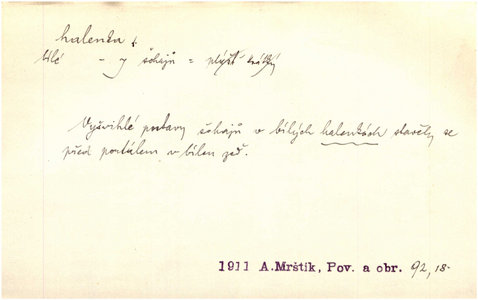 halenka f.
bílé – y šohajů = plášť krátký
Vyšvihlé postavy šohajů v bílých halenkách stavěly se
před portálem v bílou zeď.
1911 A.Mrštík, Pov. a obr. 92, 18.